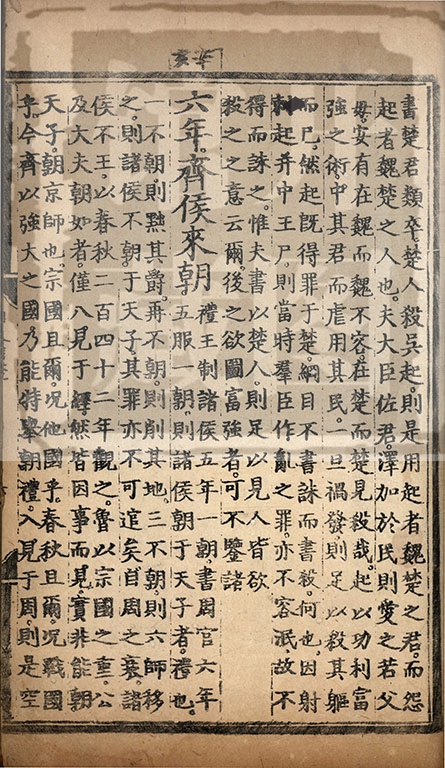 書楚君類卒楚人殺吳起則是用起者魏楚之君而怨
起者魏楚之人也夫大臣佐君澤加於民則愛之若父
母安有在魏而魏不容在楚而楚見殺哉起以功利富
強之術中其君而虐用其民一旦禍發則足以殺其軀
而已然起旣得罪于楚綱目不書誅而書殺何也因射
刺起幷中王尸則當時羣臣作亂之罪亦不容泯故不
得而誅之惟夫書以楚人則足以見人皆欲
殺之之意云爾後之欲圖富強者可不鑒諸
六年齊侯來朝禮王制諸侯五年一朝書周官六年
五服一朝則諸侯朝于天子者禮也
一不朝則黜其爵再不朝則削其地三不朝則六師移
之則諸侯不朝于天子其罪亦不可逭矣自周之衰諸
侯不王以春秋二百四十二年觀之魯以宗國之重公
及大夫朝如者僅八見于經然皆因事而見實非能朝
天子朝京師也宗國且爾况他國乎春秋且爾况戰國
乎今齊以強大之國乃能特舉朝禮入見于周則是空